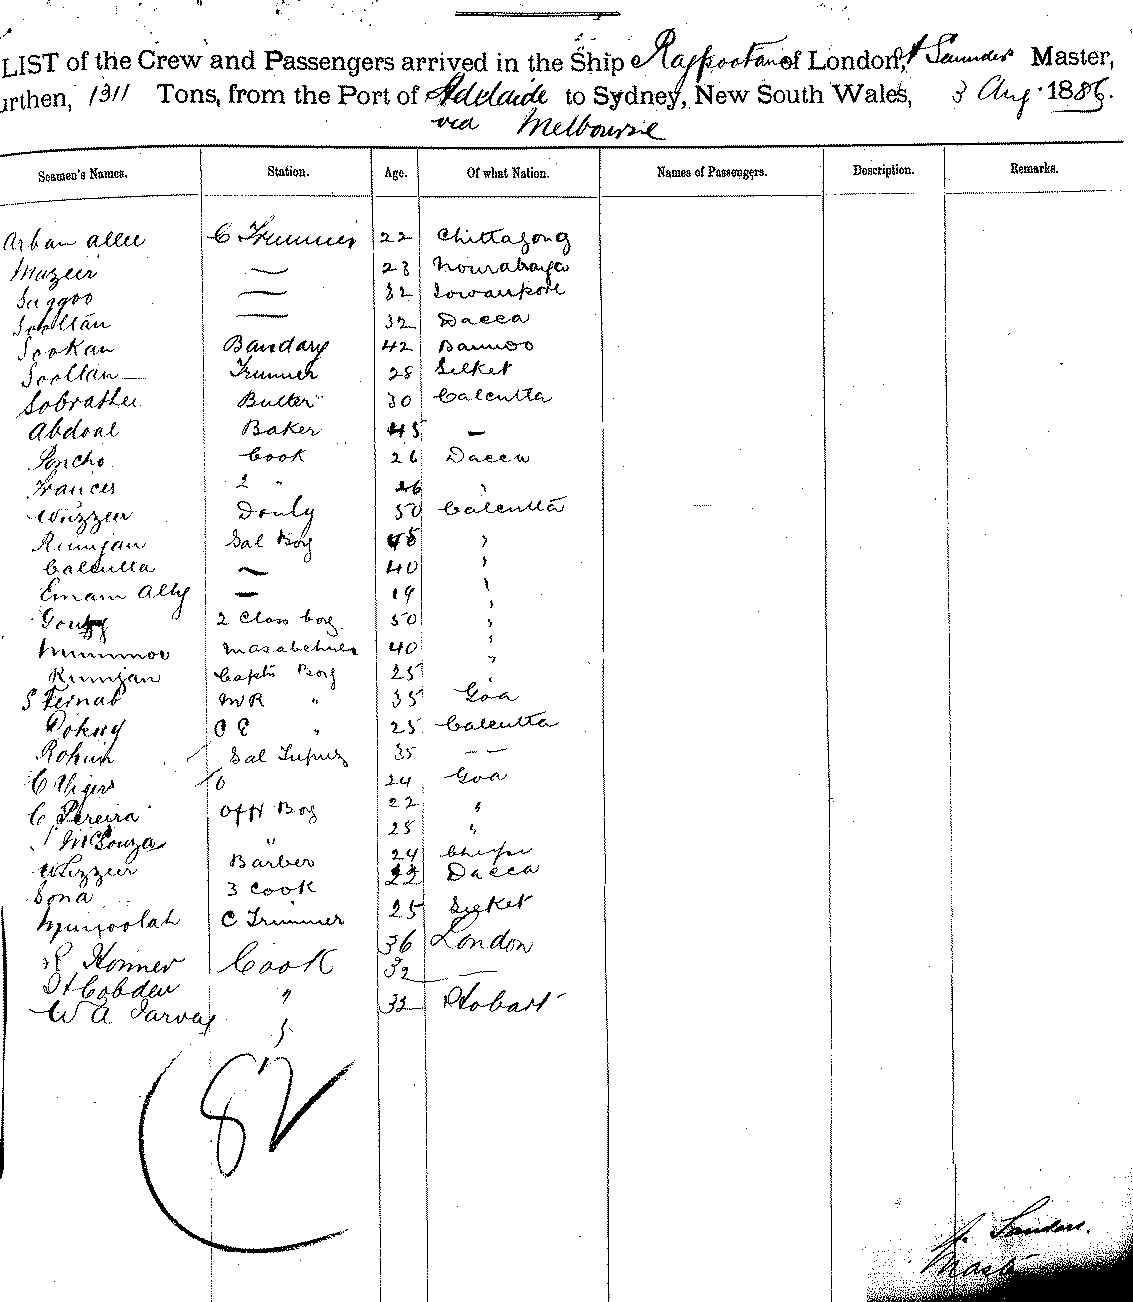 LIST of the Crew and Passengers arrived in the Ship Rajpootan of London, Saunders Master,
urthen, 1311 Tons, from the Port of Adelaide to Sydney, New South Wales, 3 Aug. 1886.
via Melbourne
Seamen's Names. Station. Age. Of what Nation. Names of Passengers. Description. Remarks.
Arban allee C Trimmer 22 Chittagong
Muzeer — 23
Juggoo — 32
Sooltan — 32 Dacca
Sookan Bandary 42
Sooltan — Trimmer 28 Silket
Sobrathee Butler 30 Calcutta
Abdoal Baker 45 —
Poncho Cook 26 Dacca
Frances 2 " 26 "
Wuzzeer 50 Calcutta
Rumjan Sal Boy 45 "
Calcutta — 40 "
Emam Ally — 19 "
2 Class boy 50 "
40 "
Rumjan Capts Boy 25 "
35 Goa
25 Calcutta
Rohim Sal 35 — —
24 Goa
C Pereira Offr Boy 22 "
" 25 "
Wuzzeer Barber 24
Sona 3 Cook 22 Dacca
C Trimmer 25 Silket
R Honner Cook 36 London
H Cobden " 32 —
W A Jarvas " 32 Hobart
82
J. Sanders.
Master